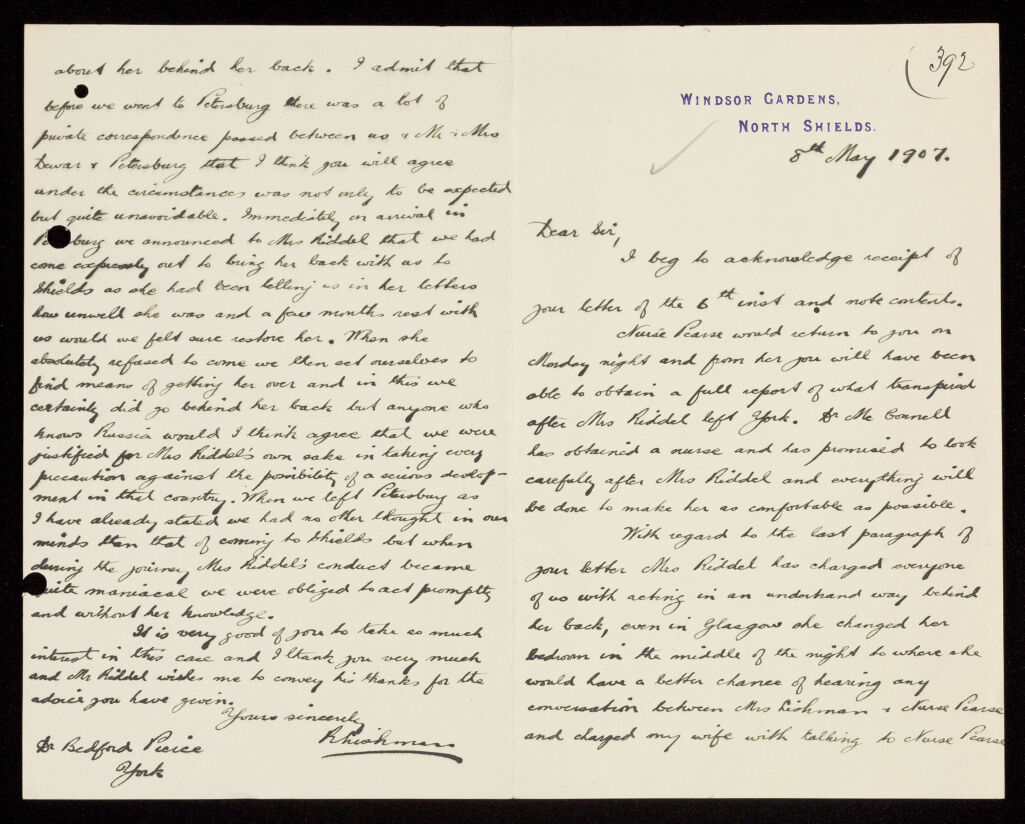 (392
WINDSOR GARDENS,
NORTH SHIELDS.
8th May 1907.
Dear Sir,
I beg to acknowledge receipt of
your letter of the 6th inst and note contents.
Nurse Pearse would return to you on
Monday night and from her you will have been
able to obtain a full report of what transpired
after Mrs Riddel left York. Dr Mc Connell
has obtained a nurse and has promised to look
carefully after Mrs Riddel and everything will
be done to make her as comfortable as possible.
With regard to the last paragraph of
your letter Mrs Riddel has charged everyone
of us with acting in an underhand way behind
her back, even in Glasgow she changed her
bedroom in the middle of the night to where she
would have a better chance of hearing any
conversation between Mrs Lishman & Nurse Pearse
and charged my wife with talking to Nurse Pearse
about her behind her back. I admit that
before we went to Petersburg there was a lot of
private correspondence passed between us & Mr & Mrs
Dewar & Petersburg that I think you will agree
under the circumstances was not only to be expected
but quite unavoidable. Immediately on arrival in
burg we announced to Mrs Riddel that we had
come expressly out to bring her back with us to
Shields as she had been telling us in her letters
how unwell she was and a few months rest with
us would we felt sure restore her. When she
absolutely refused to come we then set ourselves to
find means of getting her over and in this we
certainly did go behind her back but anyone who
knows Russia would I think agree that we were
justified for Mrs Riddel's own sake in taking every
precaution against the possibility of a serious develop-
ment in that country. When we left Petersburg as
I have already stated we had no other thought in our
minds than that of coming to Shields but when
during the journey Mrs Riddel's conduct became
quite maniacal we were obliged to act promptly
and without her knowledge.
It is very good of you to take so much
interest in this case and I thank you very much
and Mr Riddel wishes me to convey his thanks for the
advice you have given.
Yours sincerely
R Lishman
Dr Bedford Pierce
York